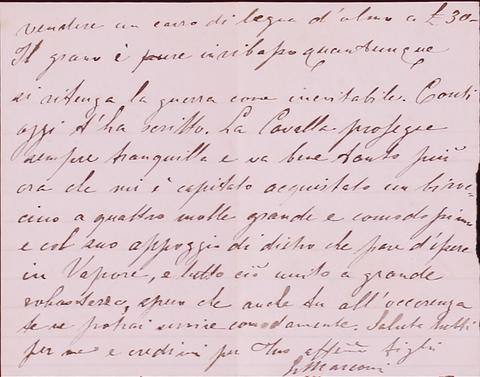 vendere un carro di legna d'olmo a £ 30-
Il grano è pure in ribasso quantunque
si ritenga la guerra come inevitabile. Conti
oggi t'ha scritto. La Cavalla prosegue
sempre tranquilla e va bene tanto più
ora che mi è capitato acquistato un biroc=
cino a quattro molle grande e comodo
e col suo appoggio di dietro che pare d'essere
in Vapore, e tutto ciò unito a grande
robustezza, spero che anche tu all'occorenza
te ne potrai servire comodamente. Saluta tutti
per me e credimi per tuo affmo figlio
G Marconi